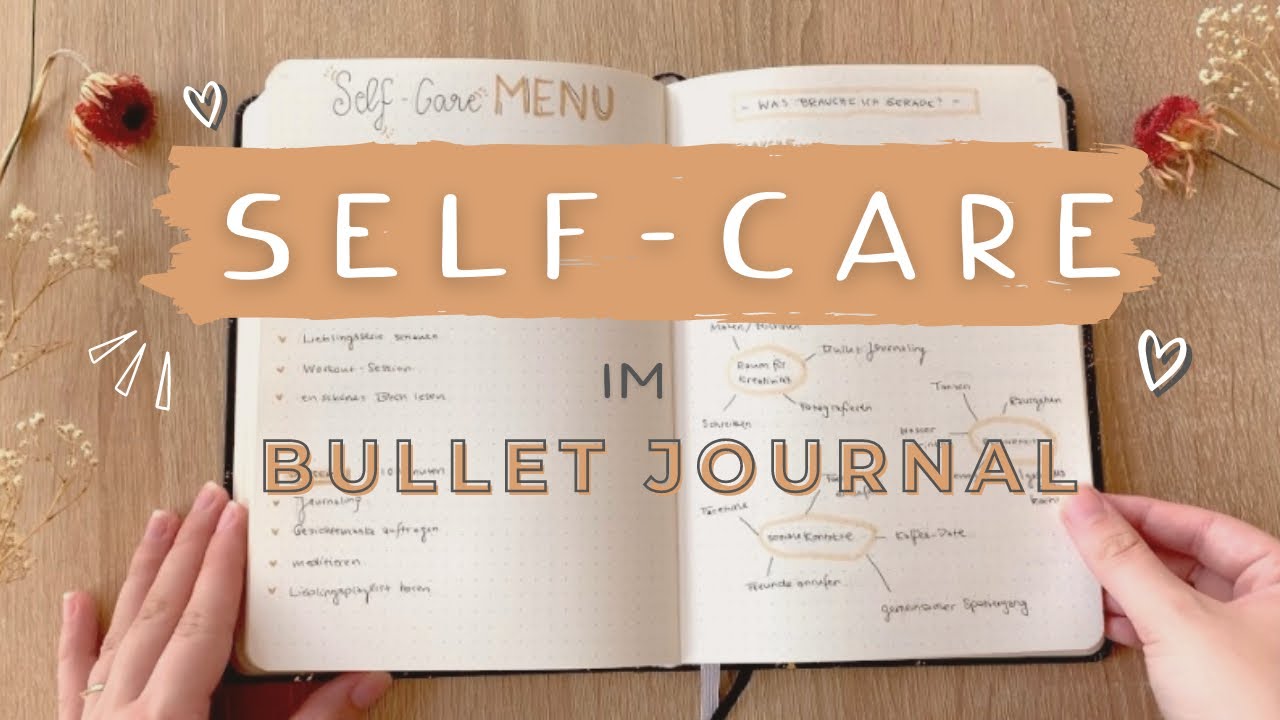 Self-Care MENU
- WAS BRAUCHE ICH GERADE? -
SELF-CARE
IM
BULLET JOURNAL
Lieblingsserie schauen
Workout-Session
ein schönes Buch lesen
Journaling
Gesichtsmaske auftragen
meditieren
Lieblingsplaylist hören
Raum für
Kreativität
Bullet Journaling
Schreiben
Fotografieren
Tanzen
soziale Kontakte
Kaffee-Date
Freunde anrufen
gemeinsamer Spaziergang